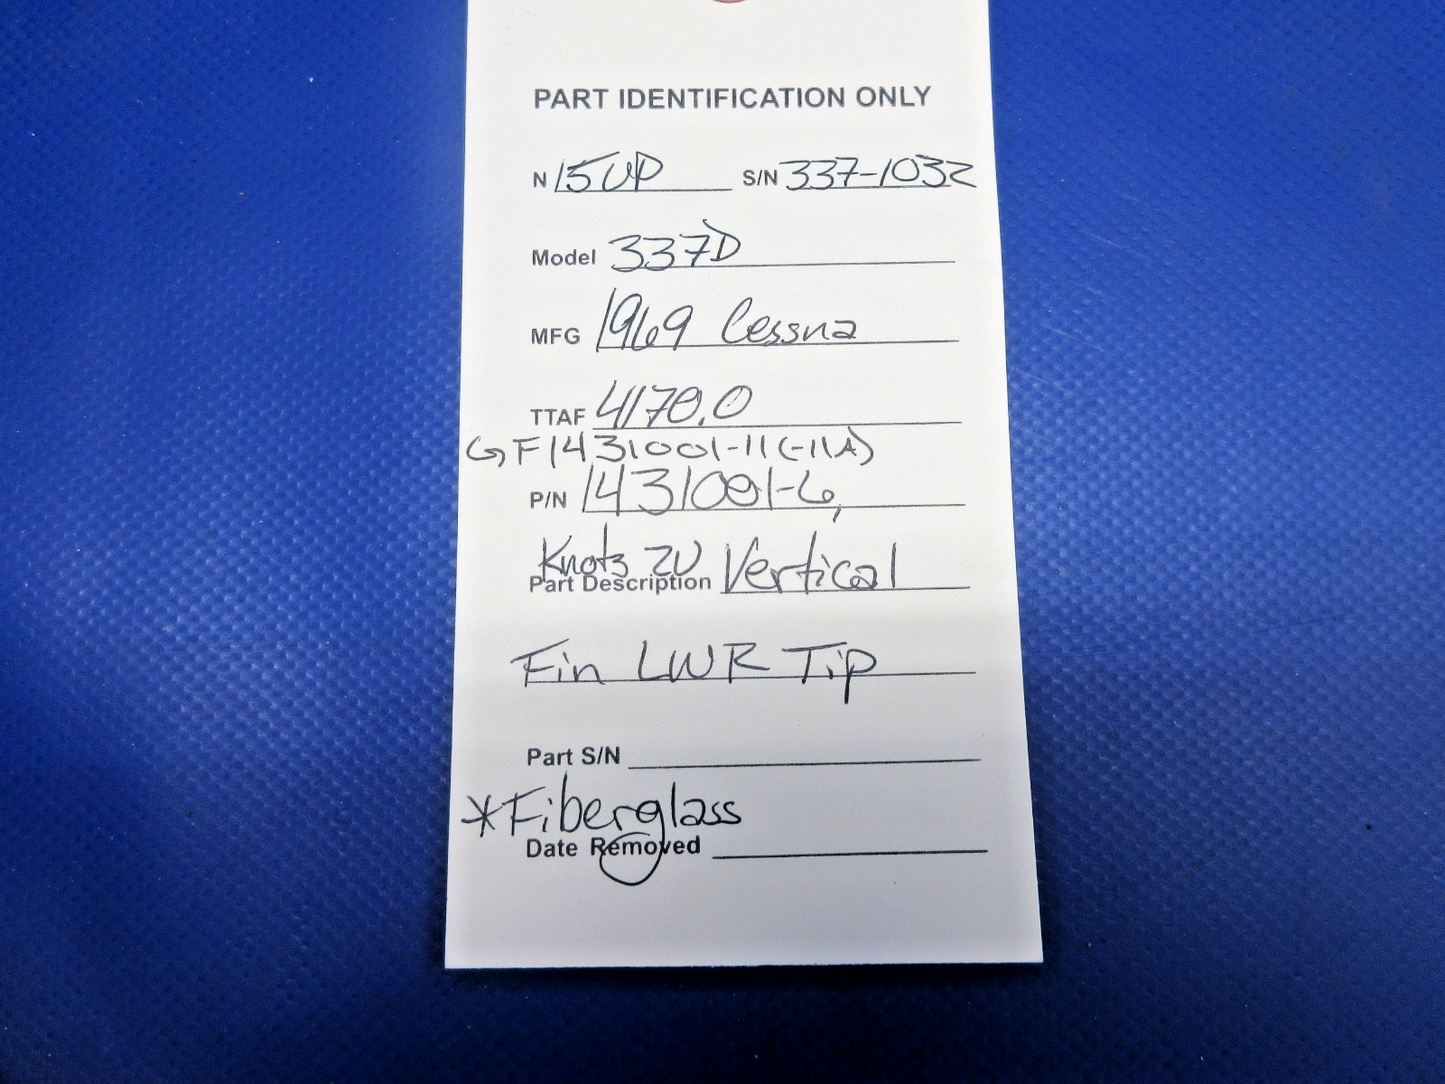 PART IDENTIFICATION ONLY
N 15UP S/N 337-1032
Model 337D
MFG 1969 Cessna
TTAF 4170.0
GF1431001-11(-11A)
P/N 1431001-6,
Knots 2U
Part Description Vertical
Fin LWR Tip
Part S/N
*Fiberglass
Date Removed